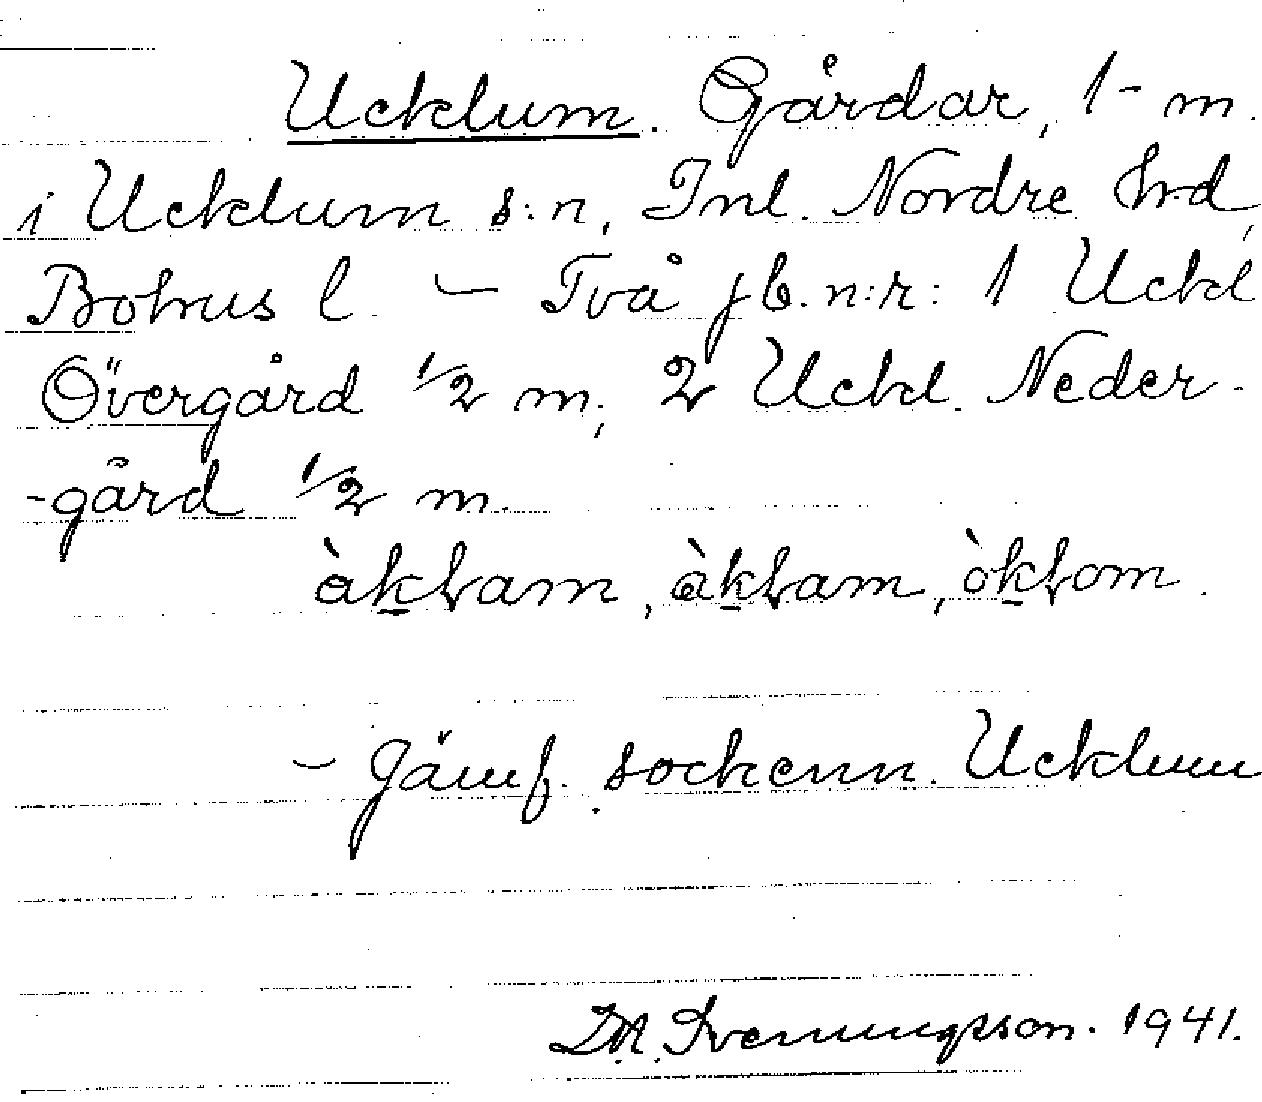 Ucklum. Gårdar, 1 - m.
i Ucklum s:n, Inl. Nordre hd,
Bohus l. — Två jb.n:r: 1 Uckl.
Övergård 1/2 m; 2 Uckl. Neder-
-gård 1/2 m.
— Jämf. sockenn. Ucklum
Svenungsson. 1941.